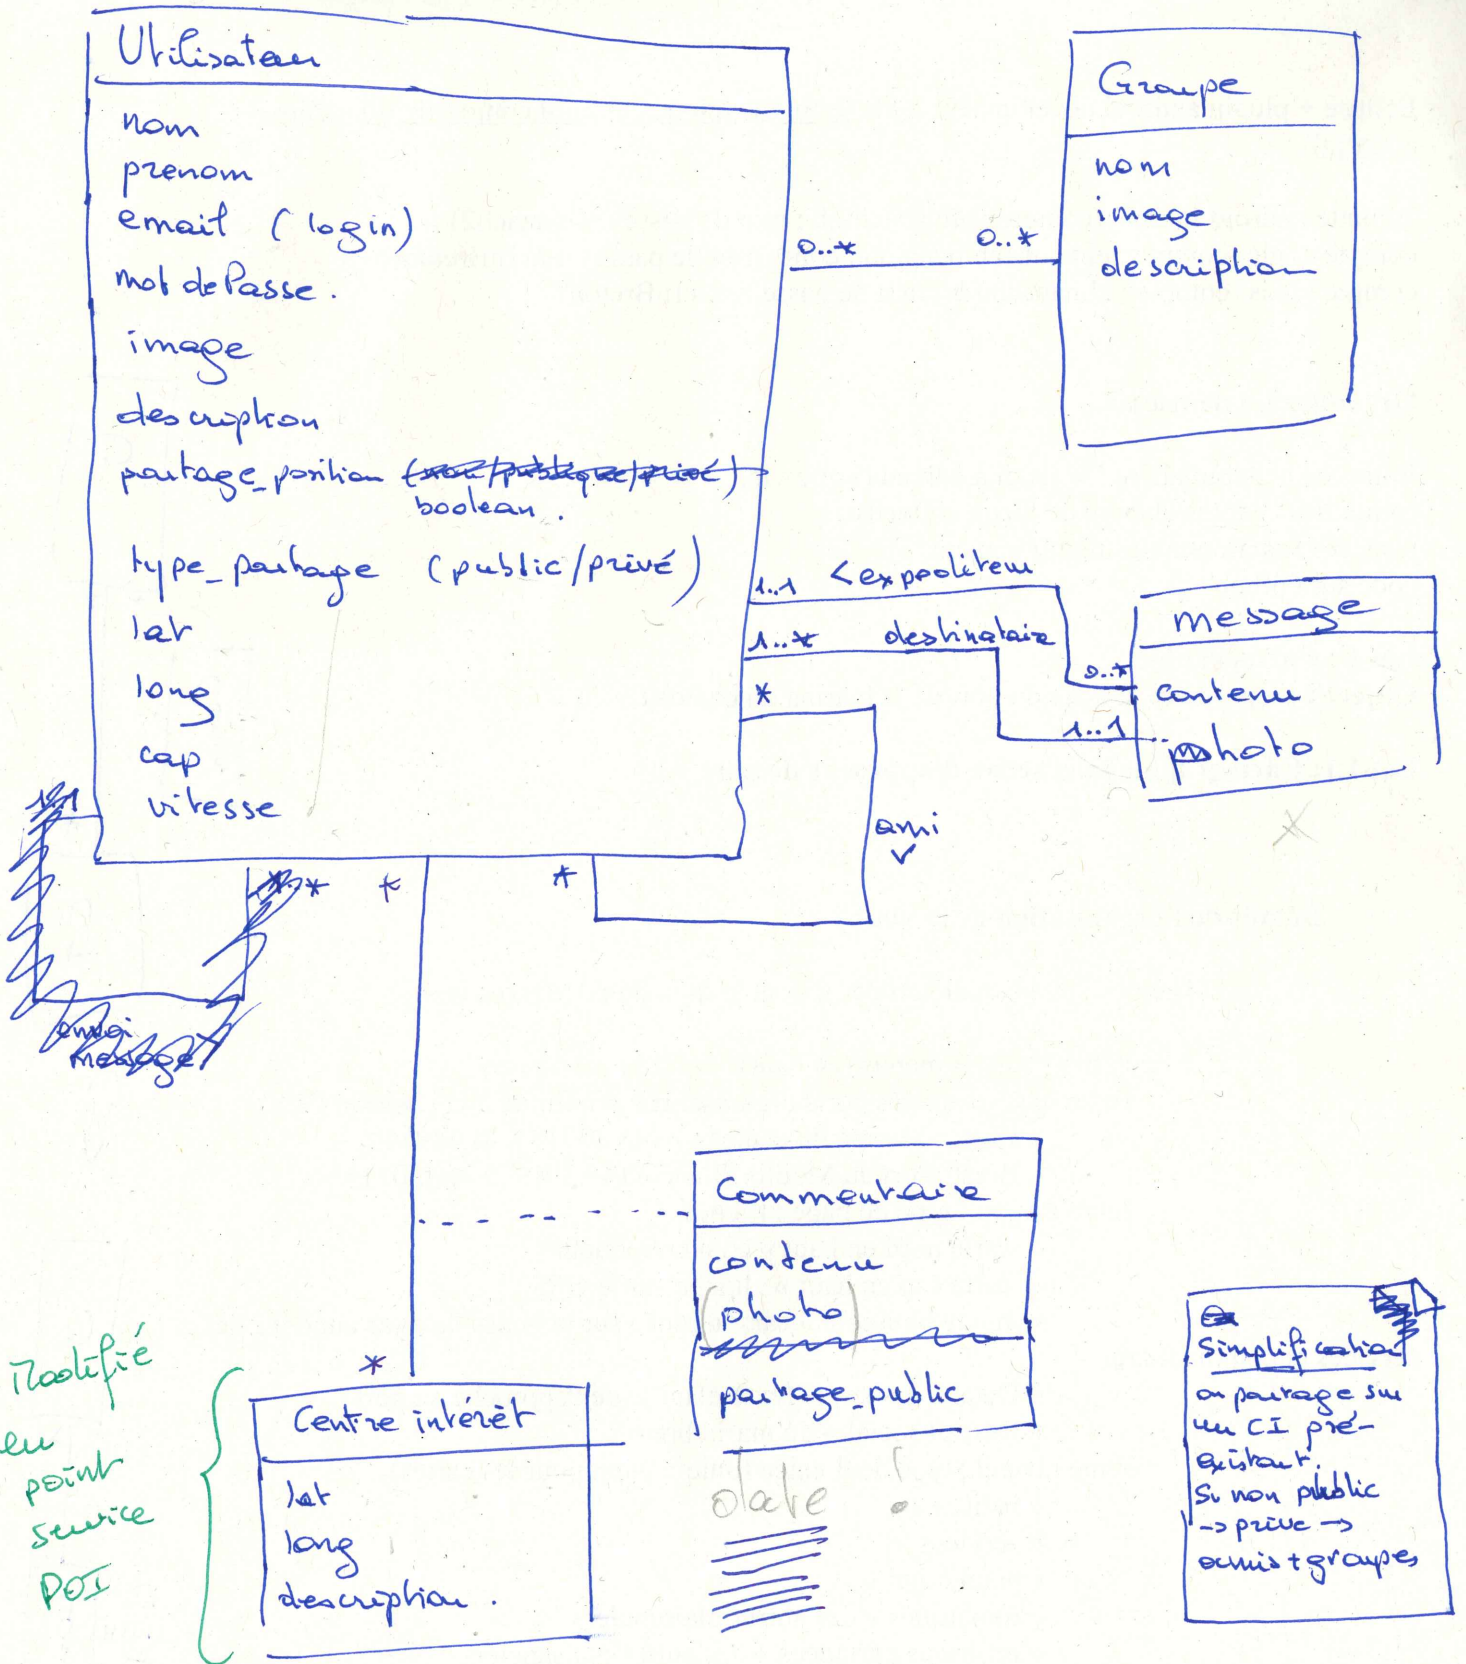 Utilisateur
nom
prenom
email (login)
mot de Passe.
image
description
partage_position (non/publique/privé)
boolean.
type_partage (public/privé)
lat
long
cap
vitesse
Groupe
nom
image
description
0..* 0..*
1..1 <expediteur
1..* destinataire
0..*
1..1
message
contenu
photo
*
ami
1..1
* *
*
envoi
message
Commentaire
contenu
(photo)
partage_public
date !
*
Centre intérêt
lat
long
description.
Modifié
en
point
service
POI
Simplification
on partage sur
un CI pré-
existant.
Si non public
-> privé ->
amis + groupes